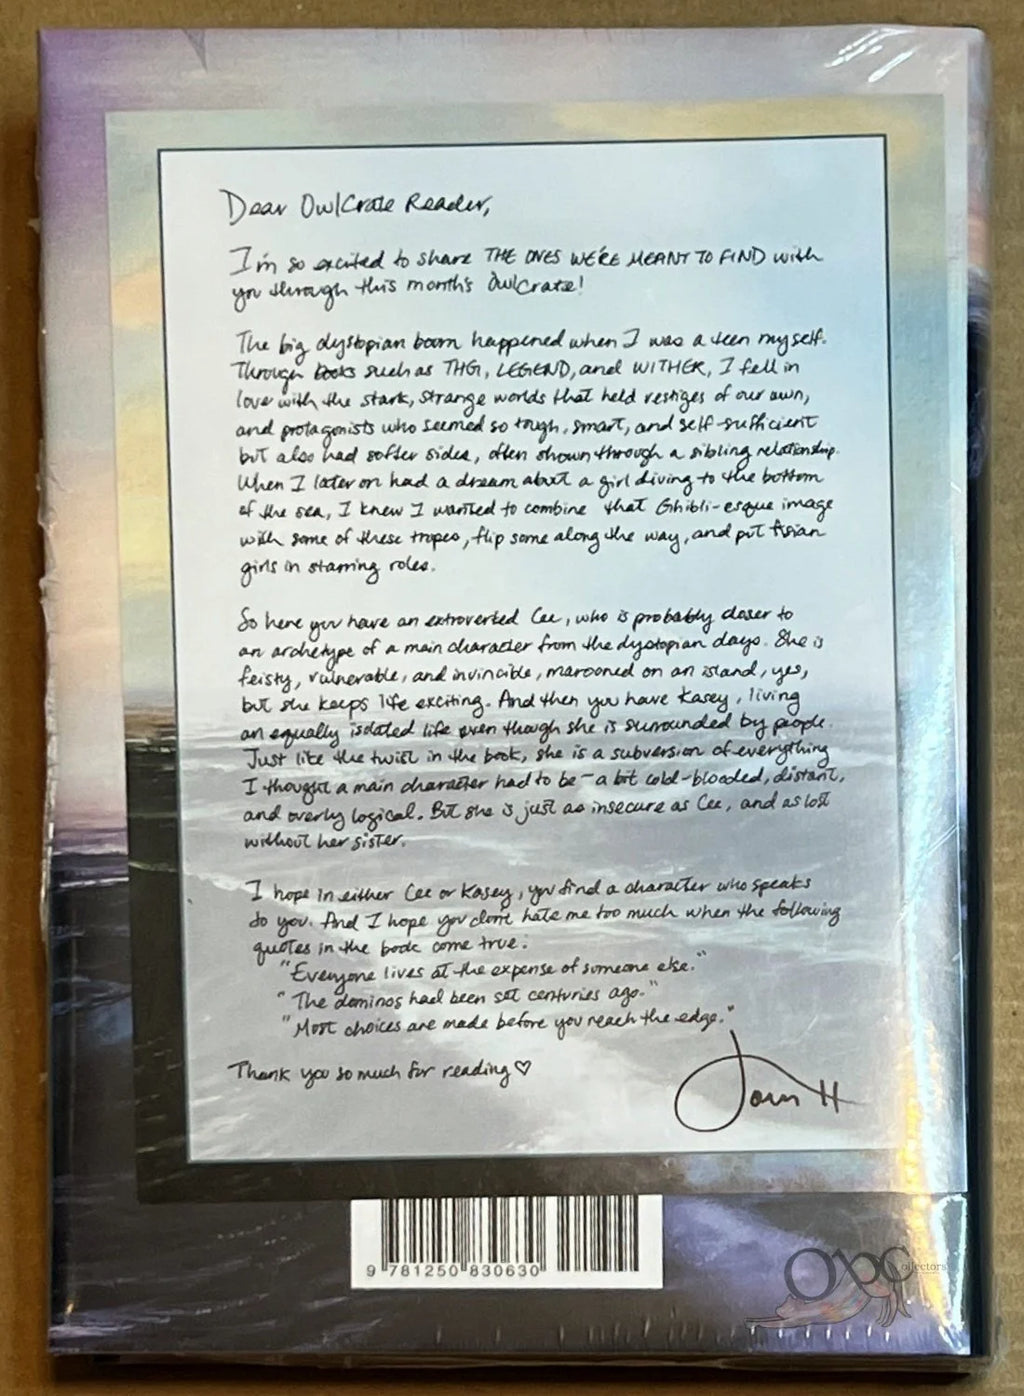 Dear OwlCrate Reader,
I'm so excited to share THE ONES WE'RE MEANT TO FIND with
you through this month's OwlCrate!
The big dystopian boom happened when I was a teen myself.
Through books such as THG, LEGEND, and WITHER, I fell in
love with the stark, strange worlds that held vestiges of our own,
and protagonists who seemed so tough, smart, and self-sufficient
but also had softer sides, often shown through a sibling relationship.
When I later on had a dream about a girl diving to the bottom
of the sea, I knew I wanted to combine that Ghibli-esque image
with some of these tropes, flip some along the way, and put Asian
girls in starring roles.
So here you have an extroverted Cee, who is probably closer to
an archetype of a main character from the dystopian days. She is
feisty, vulnerable, and invincible, marooned on an island, yes,
but she keeps life exciting. And then you have Kasey, living
an equally isolated life even though she is surrounded by people.
Just like the twist in the book, she is a subversion of everything
I thought a main character had to be - a bit cold-blooded, distant,
and overly logical. But she is just as insecure as Cee, and as lost
without her sister.
I hope in either Cee or Kasey, you find a character who speaks
to you. And I hope you don't hate me too much when the following
quotes in the book come true:
"Everyone lives at the expense of someone else."
"The dominos had been set centuries ago."
"Most choices are made before you reach the edge."
Thank you so much for reading ♡
Joan H
9 781250 830630
OBC ollectors